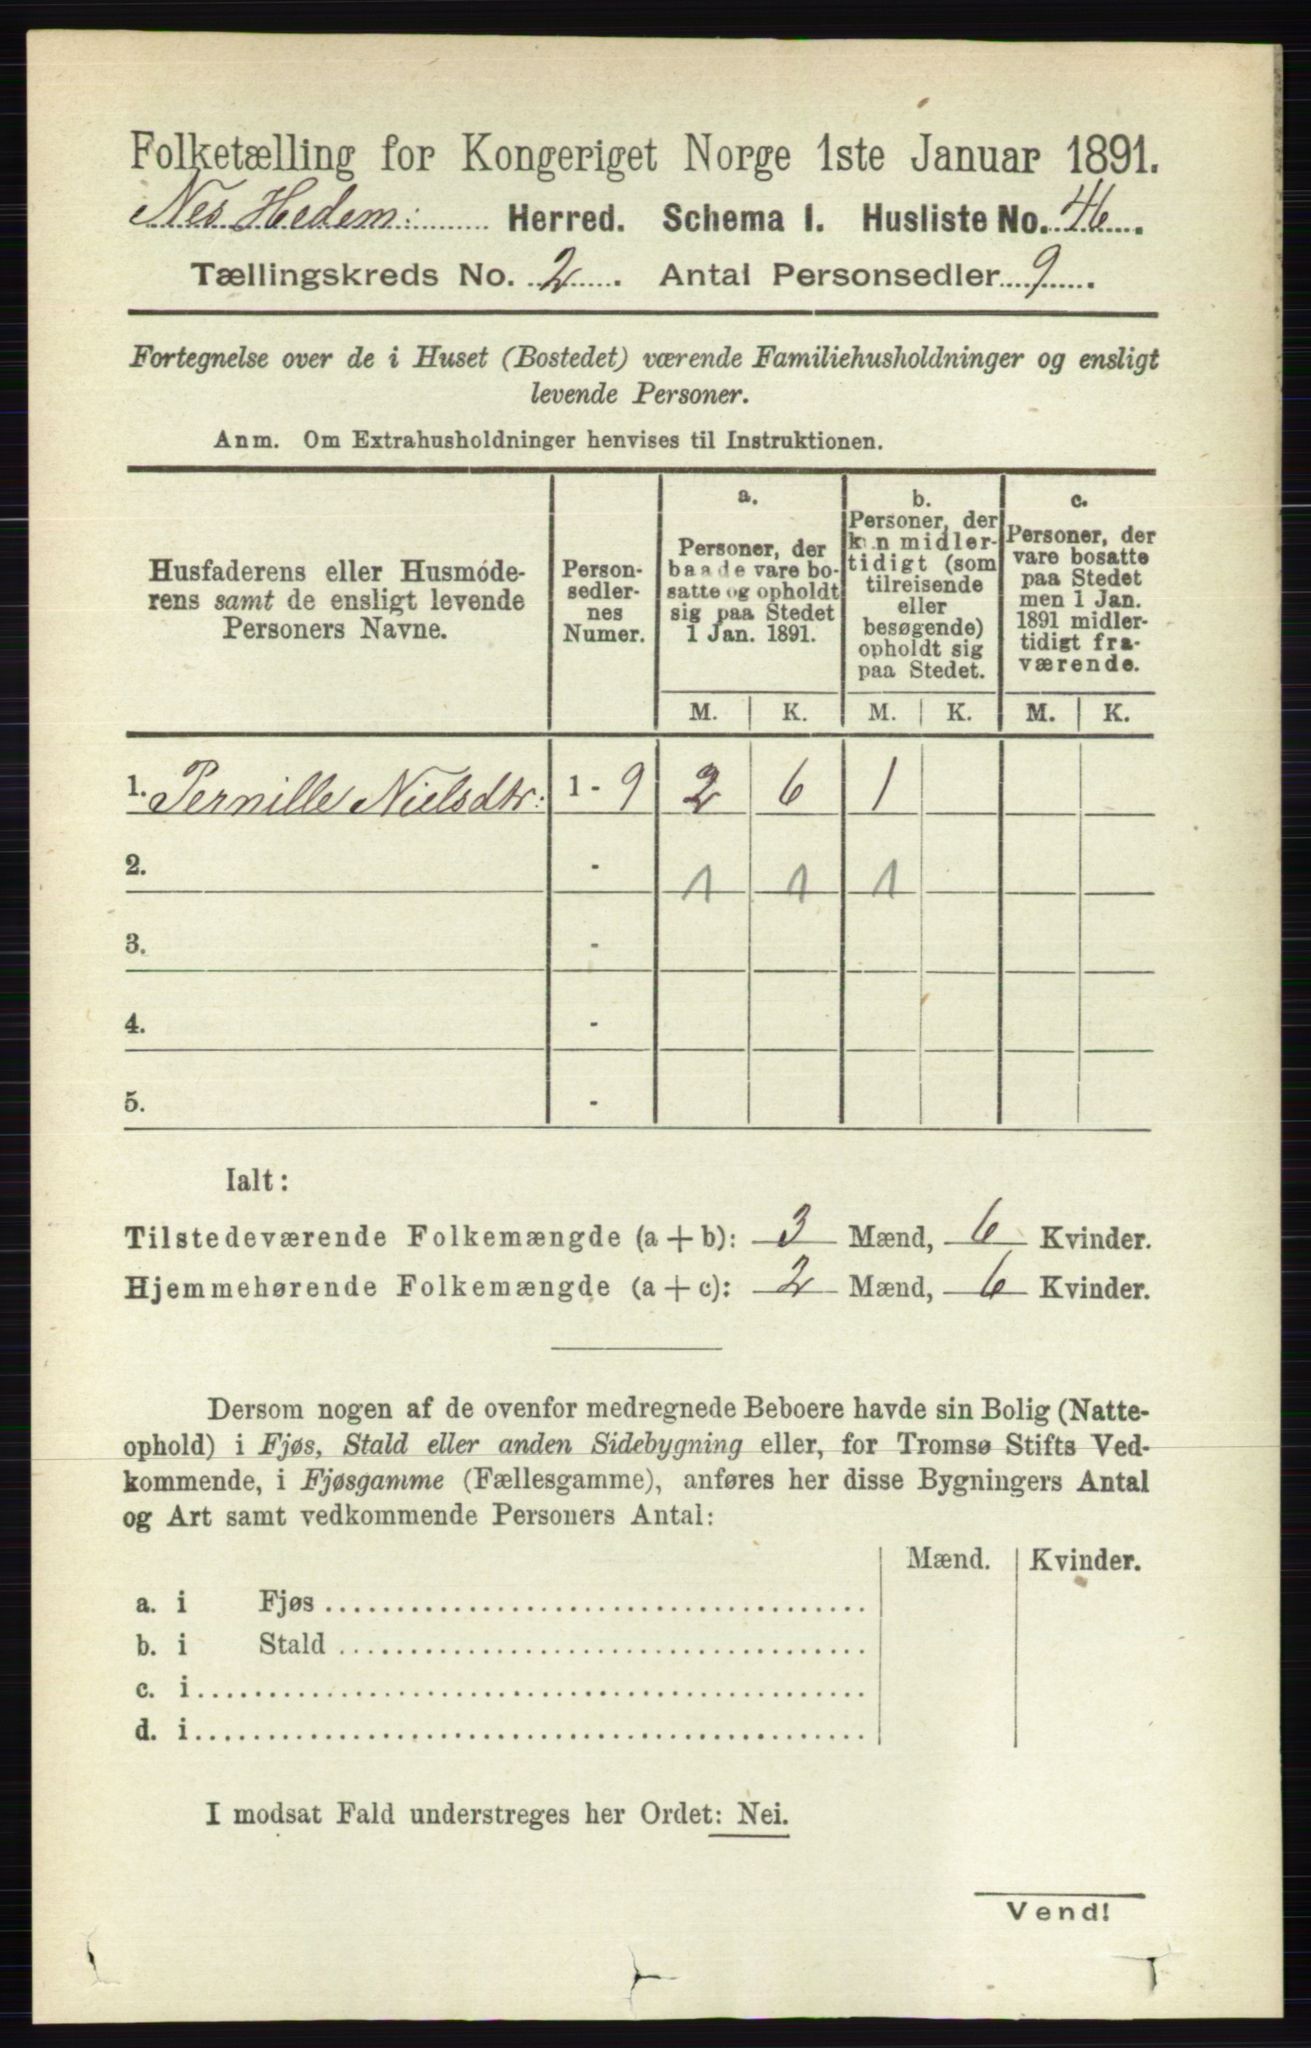 Folketælling for Kongeriget Norge 1ste Januar 1891.
Nes Hedem: Herred. Schema 1. Husliste No. 46.
Tællingskreds No. 2. Antal Personsedler 9.
Fortegnelse over de i Huset (Bostedet) værende Familiehusholdninger og ensligt
levende Personer.
Anm. Om Extrahusholdninger henvises til Instruktionen.
Husfaderens eller Husmøde-
rens samt de ensligt levende
Personers Navne.
Person-
sedler-
nes
Numer.
a.
Personer, der
baade vare bo-
satte og opholdt
sig paa Stedet
1 Jan. 1891.
b.
Personer, der
kun midler-
tidigt (som
tilreisende
eller
besøgende)
opholdt sig
paa Stedet.
c.
Personer, der
vare bosatte
paa Stedet
men 1 Jan.
1891 midler-
tidigt fra-
værende.
M. K. M. K. M. K.
1. Pernille Nielsdtr: 1 - 9 2 6 1
2. - 1 1 1
3. -
4. -
5. -
Ialt:
Tilstedeværende Folkemængde (a + b): 3 Mænd, 6 Kvinder.
Hjemmehørende Folkemængde (a + c): 2 Mænd, 6 Kvinder.
Dersom nogen af de ovenfor medregnede Beboere havde sin Bolig (Natte-
ophold) i Fjøs, Stald eller anden Sidebygning eller, for Tromsø Stifts Ved-
kommende, i Fjøsgamme (Fællesgamme), anføres her disse Bygningers Antal
og Art samt vedkommende Personers Antal:
Mænd. Kvinder.
a. i Fjøs
b. i Stald
c. i
d. i
I modsat Fald understreges her Ordet: Nei.
Vend!